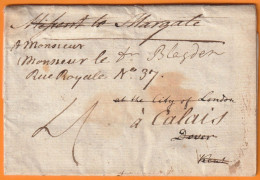 Missent to Margate
A Monsieur
Monsieur le Dr. Blagden
Rue Royale No. 37.
at the City of London
à Calais
Dover
Kent